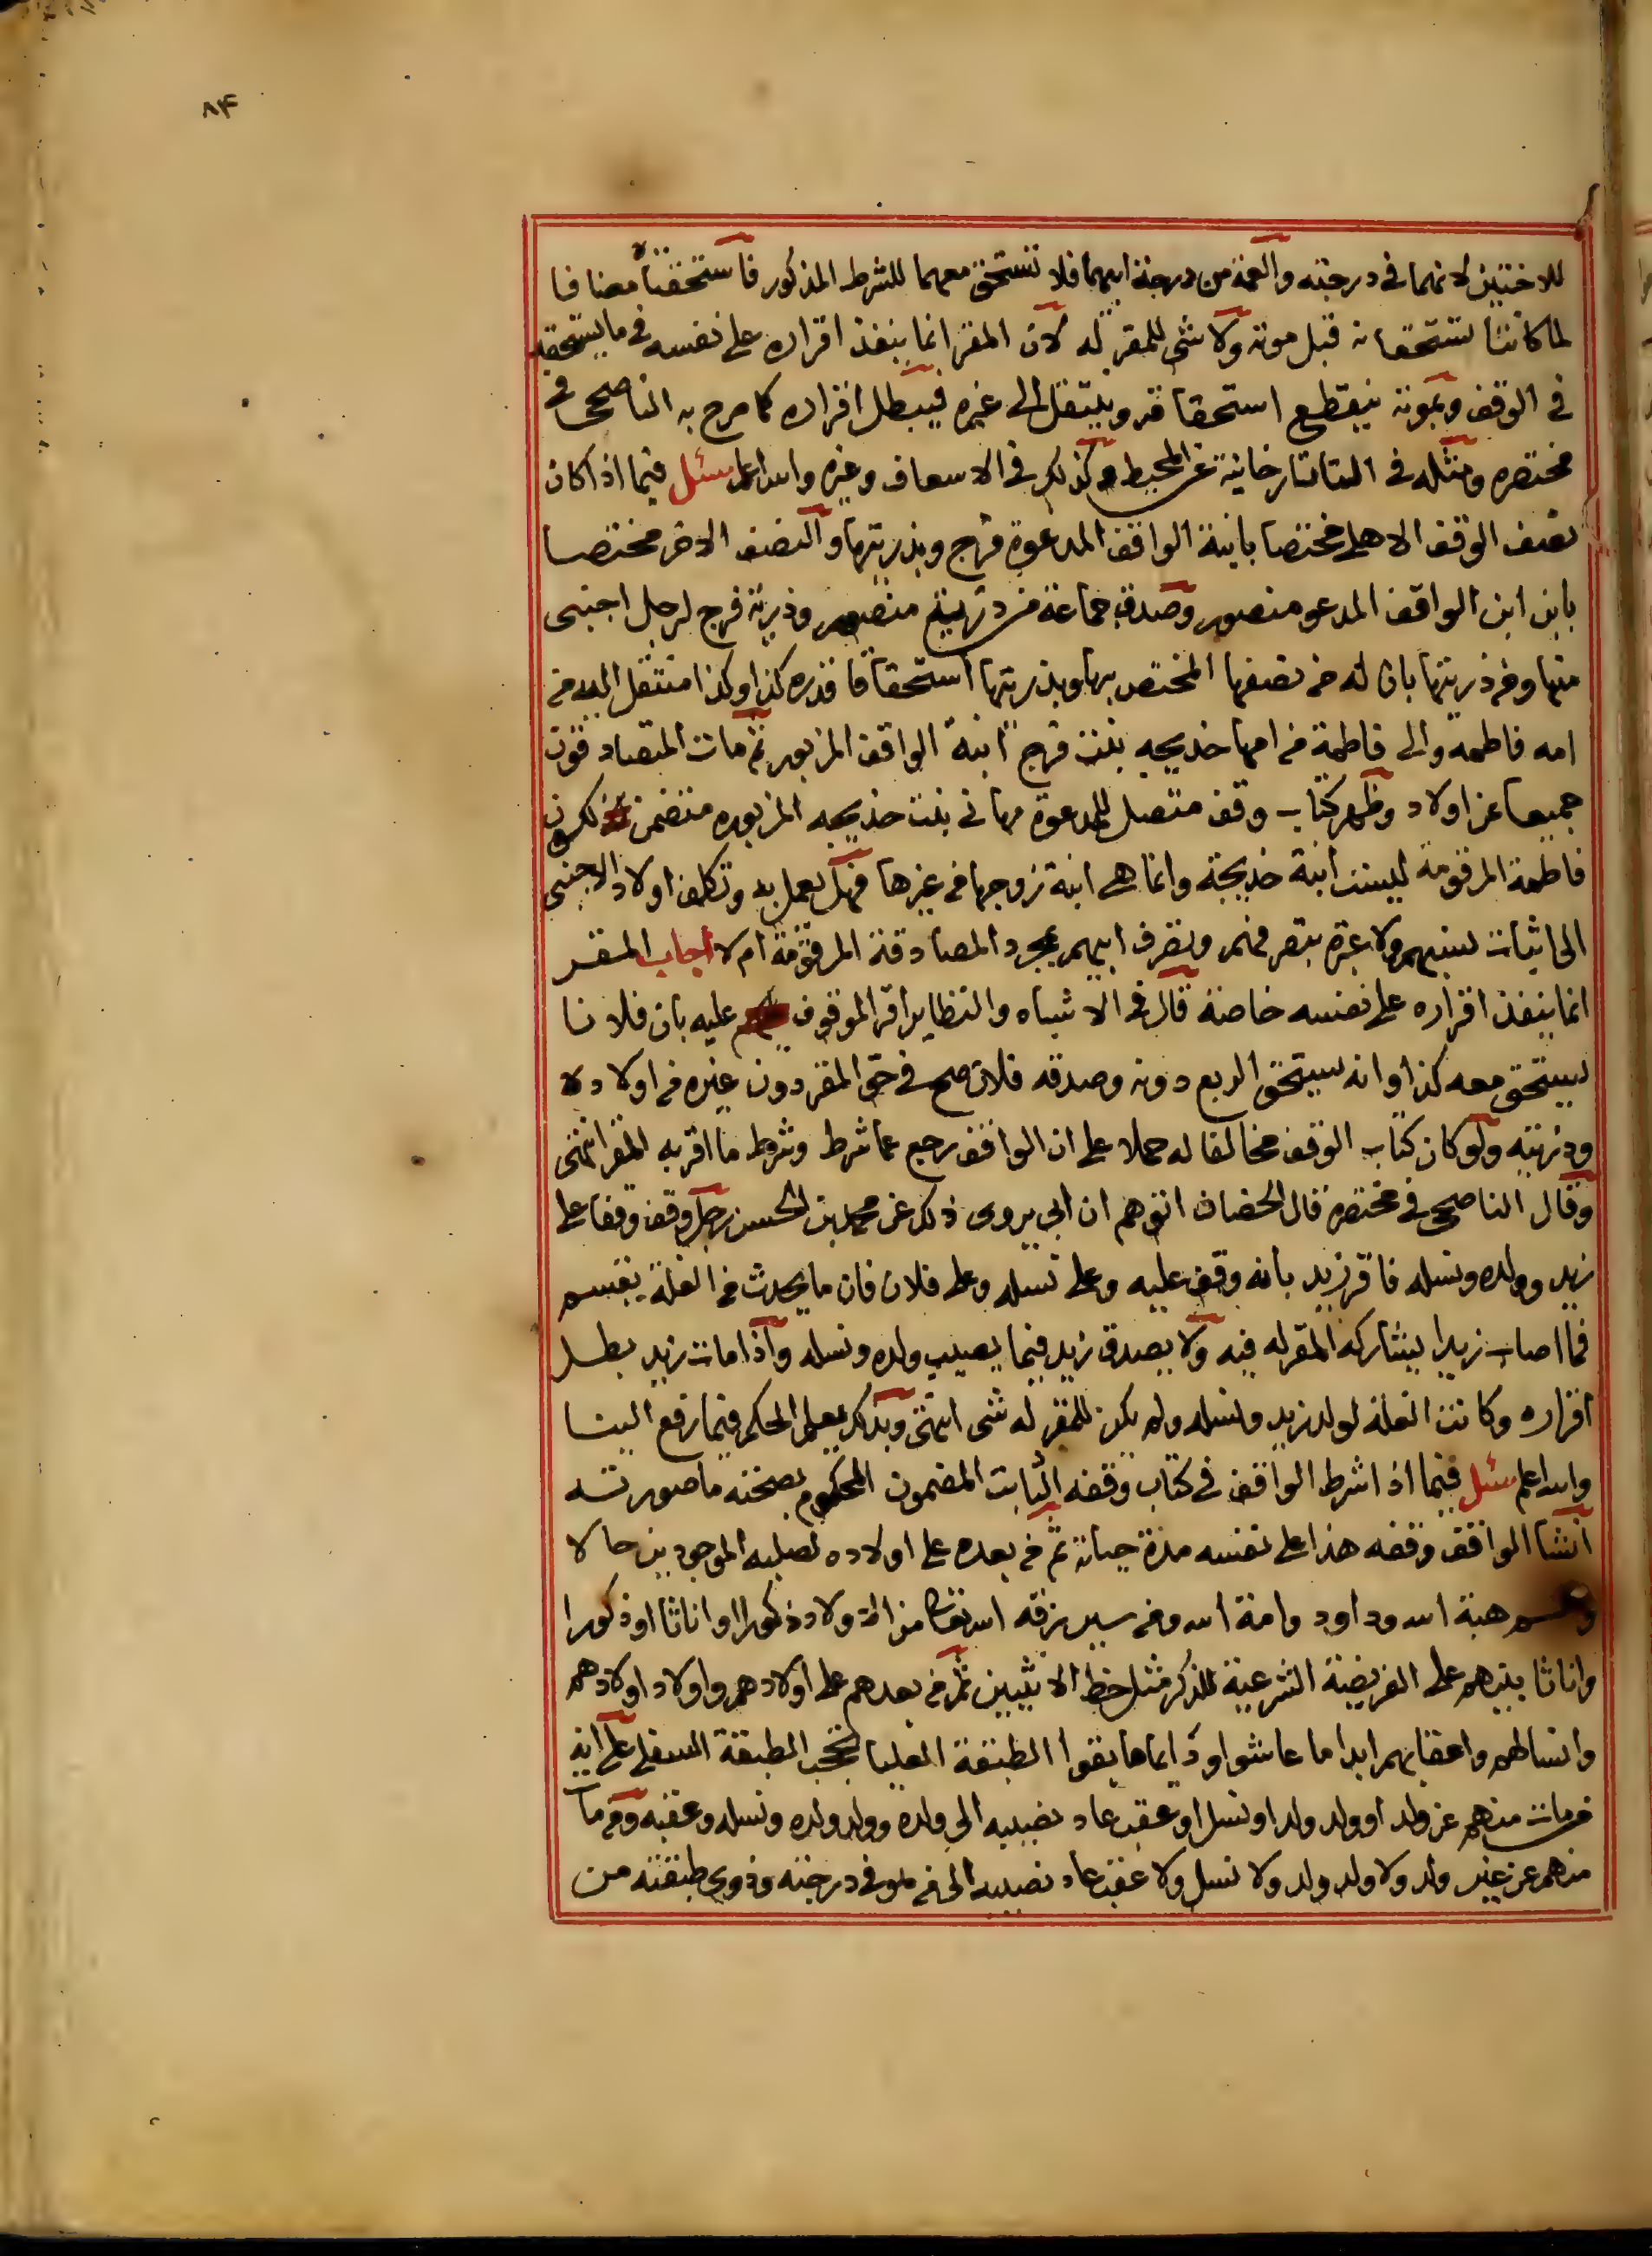 ٨٤
للاختين لانهما في درجته والعمة من درجة ابيهما فلا تستحق معهما للشرط المذكور فاستحقتاه مضافا
لما كانتا تستحقانه قبل موته ولا شي للمقر له لان المقر انما ينفذ اقراره على نفسه في ما يستحقه
في الوقف وبموته ينقطع استحقاقه وينتقل الى غيره فيبطل اقراره كما صرح به الناصحى في
مختصره ومثله في التاتارخانية عن المحيط وكذلك في الاسعاف وغيره والله اعلم سئل فيما اذا كان
نصف الوقف الاهلى مختصا بابنة الواقف المدعوة فرج وبذريتها والنصف الاخر مختصا
بابن ابن الواقف المدعو منصور وصدق جماعة من ذرية منصور وذرية فرج لرجل اجنبى
منها ومن ذريتها بان له من نصفها المختص بها وبذريتها استحقاقا قدره كذا وكذا منتقل اليه من
امه فاطمه والى فاطمة من امها خديجه بنت فرج ابنة الواقف المزبور ثم مات المتصادقون
جميعا عن اولاد وظهر كتاب وقف متصل للمدعوة مهانى بنت خديجه المزبوره متضمن لكون
فاطمة المرقومة ليست ابنة خديجة وانما هي ابنة زوجها من غيرها فهل يعمل به وتكلف اولاد الاجنبى
الى اثبات نسبهم ولا عبرة بتصرفهم وتصرف ابيهم بمجرد المصادقة المرقومة ام لا اجاب المقر
انما ينفذ اقراره على نفسه خاصة قال في الاشباه والنظاير اقر الموقوف عليه بان فلانا
يستحق معه كذا وانه يستحق الربع دونه وصدقه فلان صح في حق المقر دون غيره من اولاده
وذريته ولو كان كتاب الوقف مخالفا له حملا على ان الواقف رجع عما شرط وشرط ما اقر به المقر انتهى
وقال الناصحى في مختصره قال الخصاف اتوهم ان ابي يروى ذلك عن محمد بن الحسن رجل وقف وقفا على
زيد وولده ونسله فاقر زيد بانه وقف عليه وعلى نسله وعلى فلان فان ما يحدث من الغلة يقسم
فما اصاب زيدا يشاركه المقر له فيه ولا يصدق زيد فيما يصيب ولده ونسله واذا مات زيد بطل
اقراره وكانت الغلة لولد زيد ونسله ولم يكن للمقر له شى انتهى وبذلك يعلم الحكم فيما رفع الينا
والله اعلم سئل فيما اذا شرط الواقف في كتاب وقفه الثابت المضمون المحكوم بصحته ما صورته
انشا الواقف وقفه هذا على نفسه مدة حياته ثم من بعده على اولاده لصلبه الموجودين حالا
وهم هبة الله وداود وامنة الله ومن سيرزقه الله تعالى من الاولاد ذكورا او اناثا او ذكورا
واناثا بينهم على الفريضة الشرعية للذكر مثل حظ الانثيين ثم من بعدهم على اولادهم واولاد اولادهم
وانسالهم واعقابهم ابدا ما عاشوا ودايما ما بقوا الطبقة العليا تحجب الطبقة السفلى على انه
من مات منهم عن ولد او ولد ولد او نسل او عقب عاد نصيبه الى ولده وولد ولده ونسله وعقبه ومن مات
منهم عن غير ولد ولا ولد ولد ولا نسل ولا عقب عاد نصيبه الى من هو في درجته وذوي طبقته من